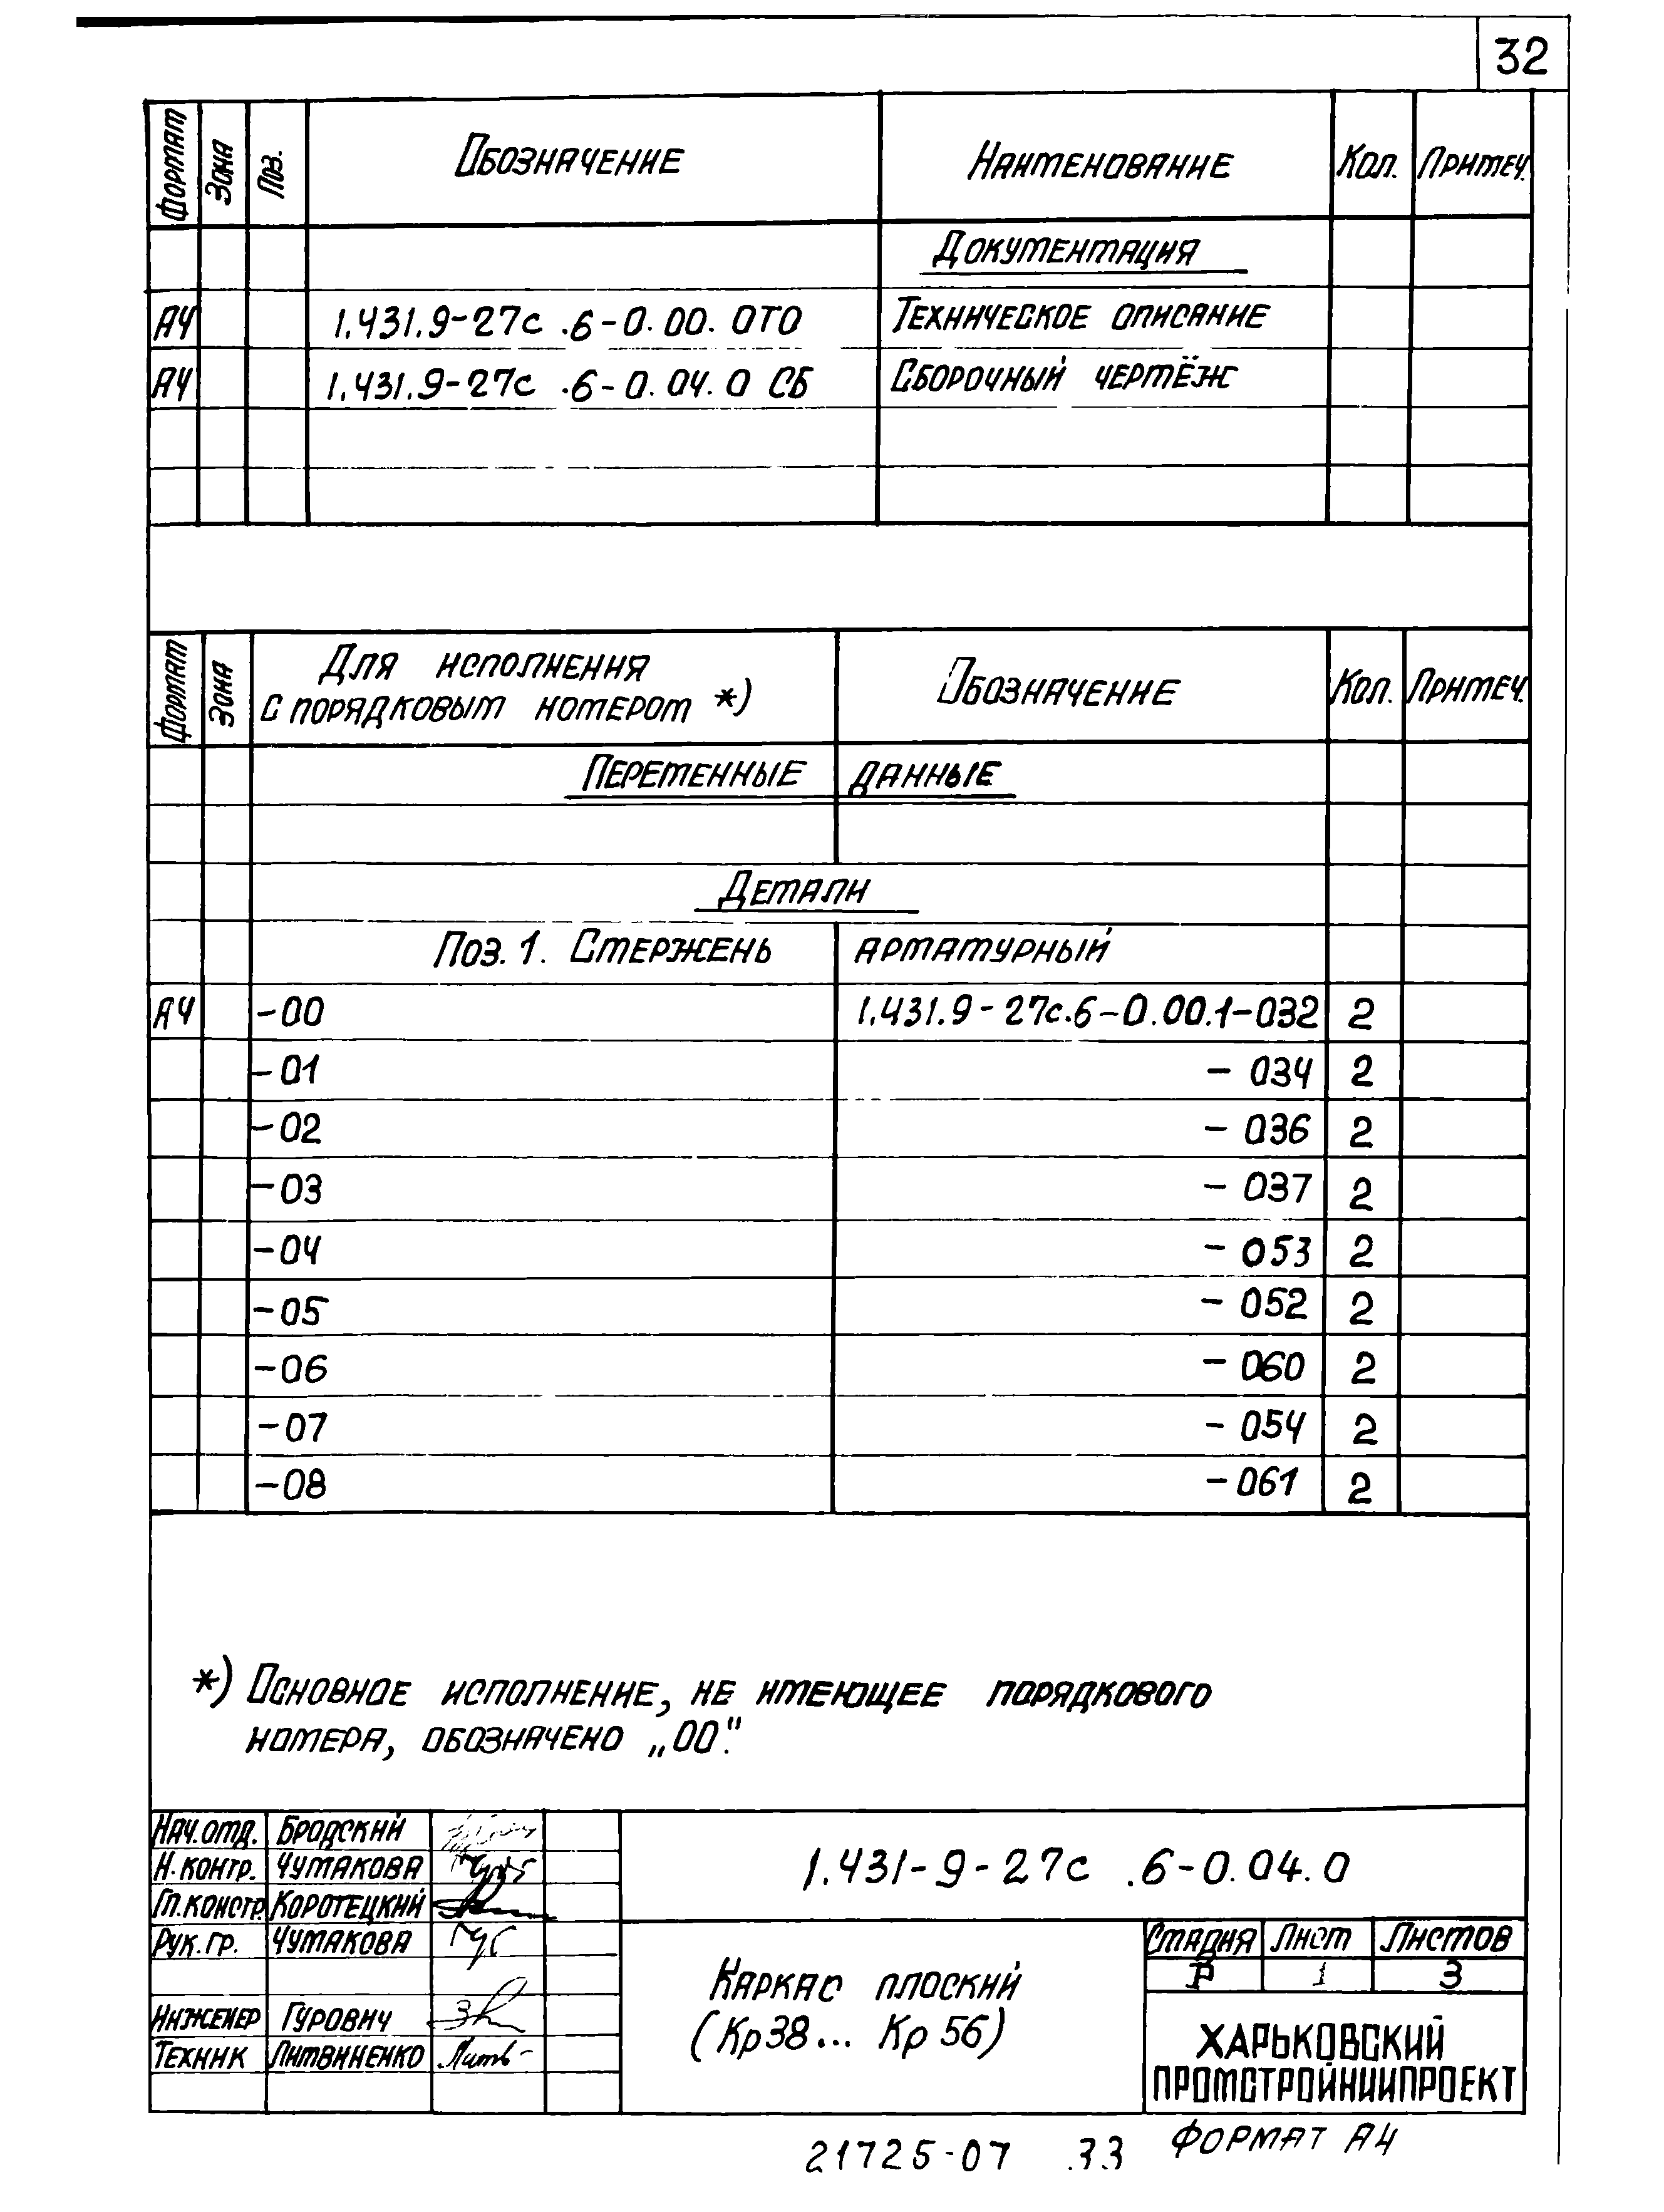 32
Формат Зона Поз. Обозначение Наименование Кол. Примеч.
Документация
А4 1.431.9-27с .6-0.00.0ТО Техническое описание
А4 1.431.9-27с .6-0.04.0 СБ Сборочный чертёж
Формат Зона Для исполнения с порядковым номером *) Обозначение Кол. Примеч.
Переменные данные
Детали
Поз. 1. Стержень арматурный
А4 -00 1.431.9-27с.6-0.00.1-032 2
-01 - 034 2
-02 - 036 2
-03 - 037 2
-04 - 053 2
-05 - 052 2
-06 - 060 2
-07 - 054 2
-08 - 061 2
*) Основное исполнение, не имеющее порядкового
номера, обозначено „00".
Нач.отд. Бродский
Н. контр. Чумакова
Гл.констр. Коротецкий
Рук. гр. Чумакова
Инженер Гурович
Техник Литвиненко
1.431-9-27с .6-0.04.0
Каркас плоский
(Кр38... Кр 56)
Стадия Лист Листов
Р 1 3
ХАРЬКОВСКИЙ
ПРОМСТРОЙНИИПРОЕКТ
21725-07 33 Формат А4